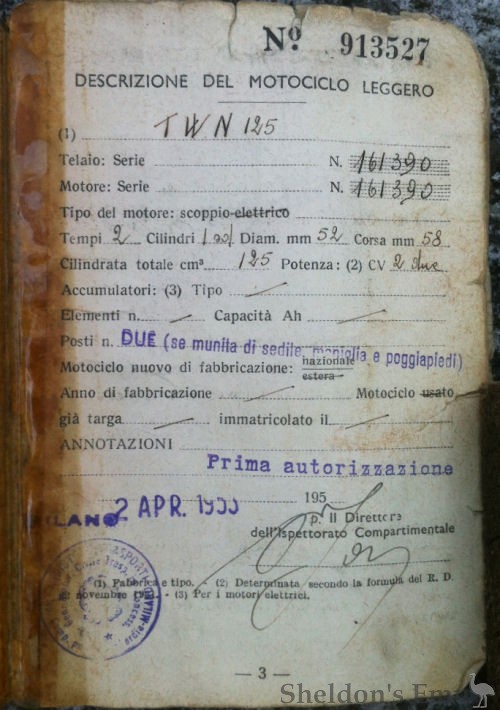 Nº 913527
DESCRIZIONE DEL MOTOCICLO LEGGERO
(1) TWN 125
Telaio: Serie N. 161390
Motore: Serie N. 161390
Tipo del motore: scoppio-elettrico
Tempi 2 Cilindri 1 Diam. mm 52 Corsa mm 58
Cilindrata totale cm³ 125 Potenza: (2) CV 2 due
Accumulatori: (3) Tipo
Elementi n. Capacità Ah
Posti n. DUE (se munita di sedile, maniglia e poggiapiedi)
Motociclo nuovo di fabbricazione: nazionale
estera
Anno di fabbricazione Motociclo usato
già targa immatricolato il
ANNOTAZIONI
Prima autorizzazione
MILANO 2 APR. 1955 195
p. Il Direttore
dell'Ispettorato Compartimentale
(1) Fabbrica e tipo. - (2) Determinata secondo la formula del R. D.
novembre - (3) Per i motori elettrici.
— 3 —
Sheldon's